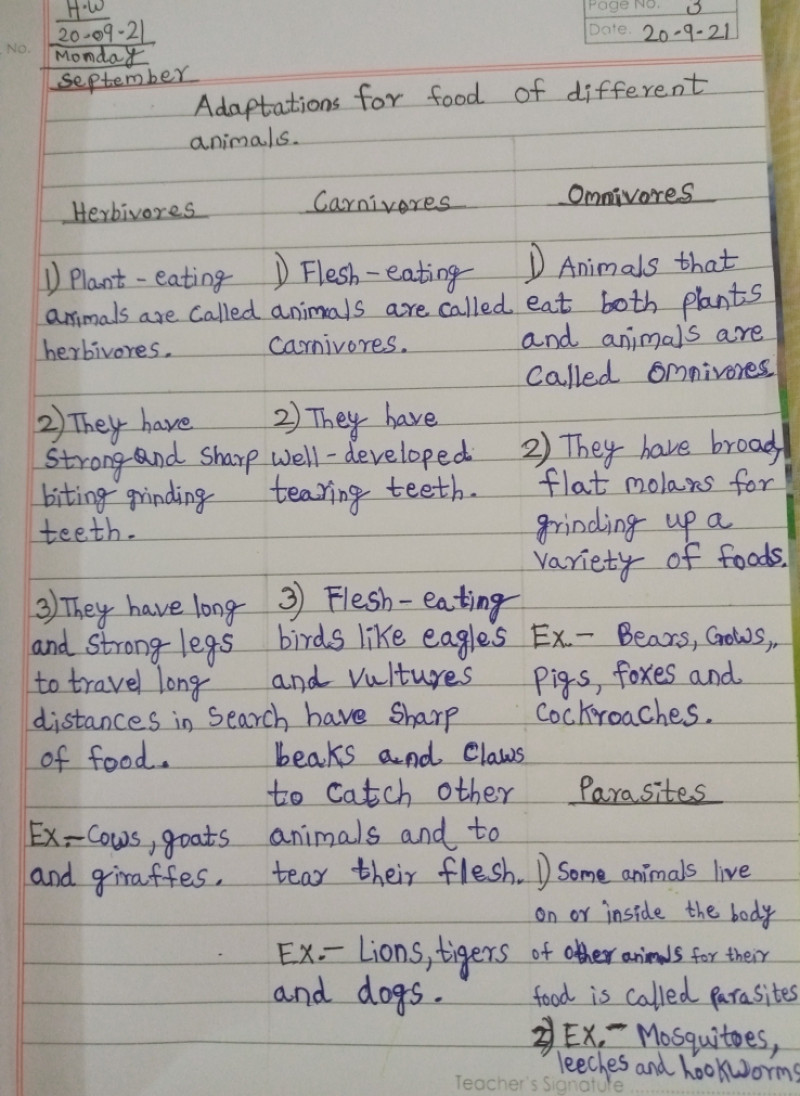 H.W
20-09-21
Monday
September
No.
Page No. 3
Date. 20-9-21
Adaptations for food of different
animals.
Herbivores
1) Plant-eating
animals are called
herbivores.
2) They have
strong and sharp
biting grinding
teeth.
3) They have long
and strong legs
to travel long
distances in search
of food.
Ex.- Cows, goats
and giraffes.
Carnivores
1) Flesh-eating
animals are called
Carnivores.
2) They have
well-developed
tearing teeth.
3) Flesh-eating
birds like eagles
and vultures
have sharp
beaks and claws
to catch other
animals and to
tear their flesh.
Ex.- Lions, tigers
and dogs.
Omnivores
1) Animals that
eat both plants
and animals are
called omnivores
2) They have broad,
flat molars for
grinding up a
variety of foods.
Ex.- Bears, Crows,,
pigs, foxes and
cockroaches.
Parasites
1) Some animals live
on or inside the body
of other animals for their
food is called parasites
2) Ex.- Mosquitoes,
leeches and hookworms
Teacher's Signature